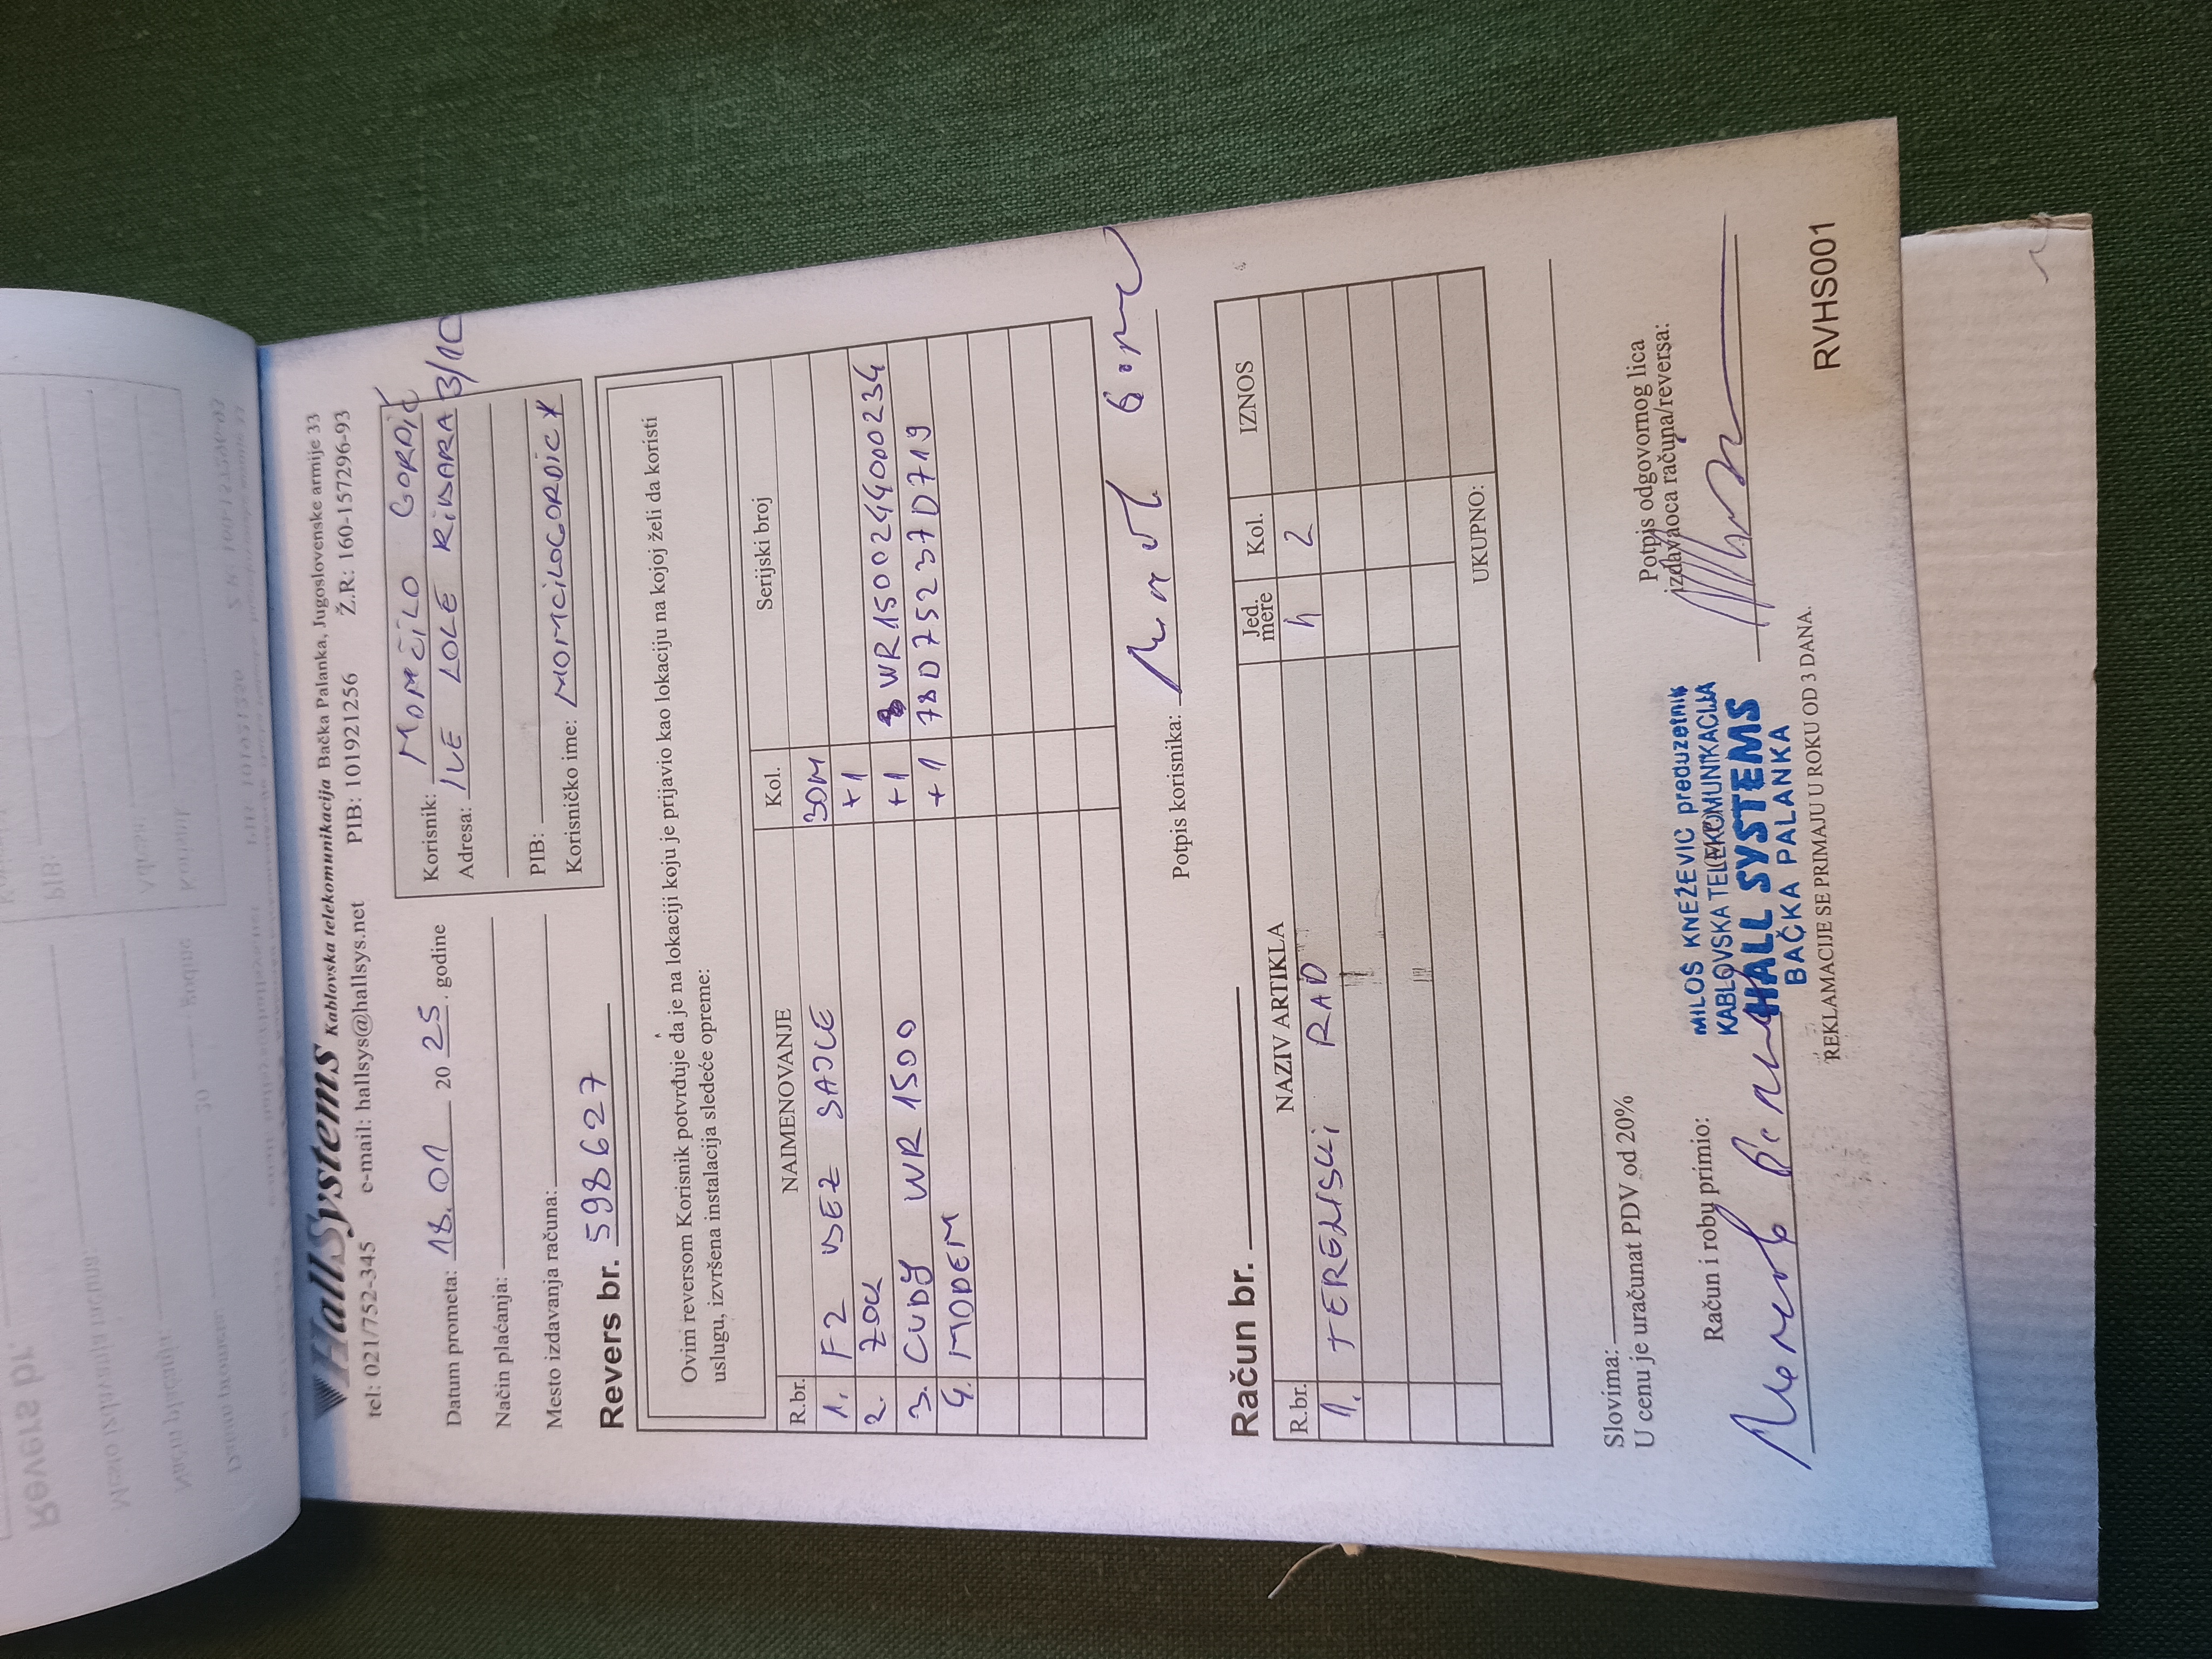 HallSystems Kablovska telekomunikacija Bačka Palanka, Jugoslovenske armije 33
tel: 021/752-345 e-mail: hallsys@hallsys.net PIB: 101921256 Ž.R: 160-157296-93
Datum prometa: 18.01 2025. godine
Način plaćanja:
Mesto izdavanja računa:
Korisnik: MOMČILO GORDIĆ
Adresa: IVE LOLE RIBARA 3/10
PIB:
Korisničko ime: MOMCILOGORDICX
Revers br. 598627
Ovim reversom Korisnik potvrđuje da je na lokaciji koju je prijavio kao lokaciju na kojoj želi da koristi
uslugu, izvršena instalacija sledeće opreme:
R.br. NAIMENOVANJE Kol. Serijski broj
1. F2 BEZ SAJLE 30M
2. ZOK +1
3. CUDY WR 1500 +1 WR15002440002​34
4. MODEM +1 78D75237D719
Potpis korisnika:
Račun br.
R.br. NAZIV ARTIKLA Jed. mere Kol. IZNOS
1. TERENSKI RAD h 2
UKUPNO:
Slovima:
U cenu je uračunat PDV od 20%
Račun i robu primio:
Potpis odgovornog lica
izdavaoca računa/reversa:
MILOŠ KNEŽEVIĆ preduzetnik
KABLOVSKA TELEKOMUNIKACIJA
HALL SYSTEMS
BAČKA PALANKA
REKLAMACIJE SE PRIMAJU U ROKU OD 3 DANA.
RVHS001